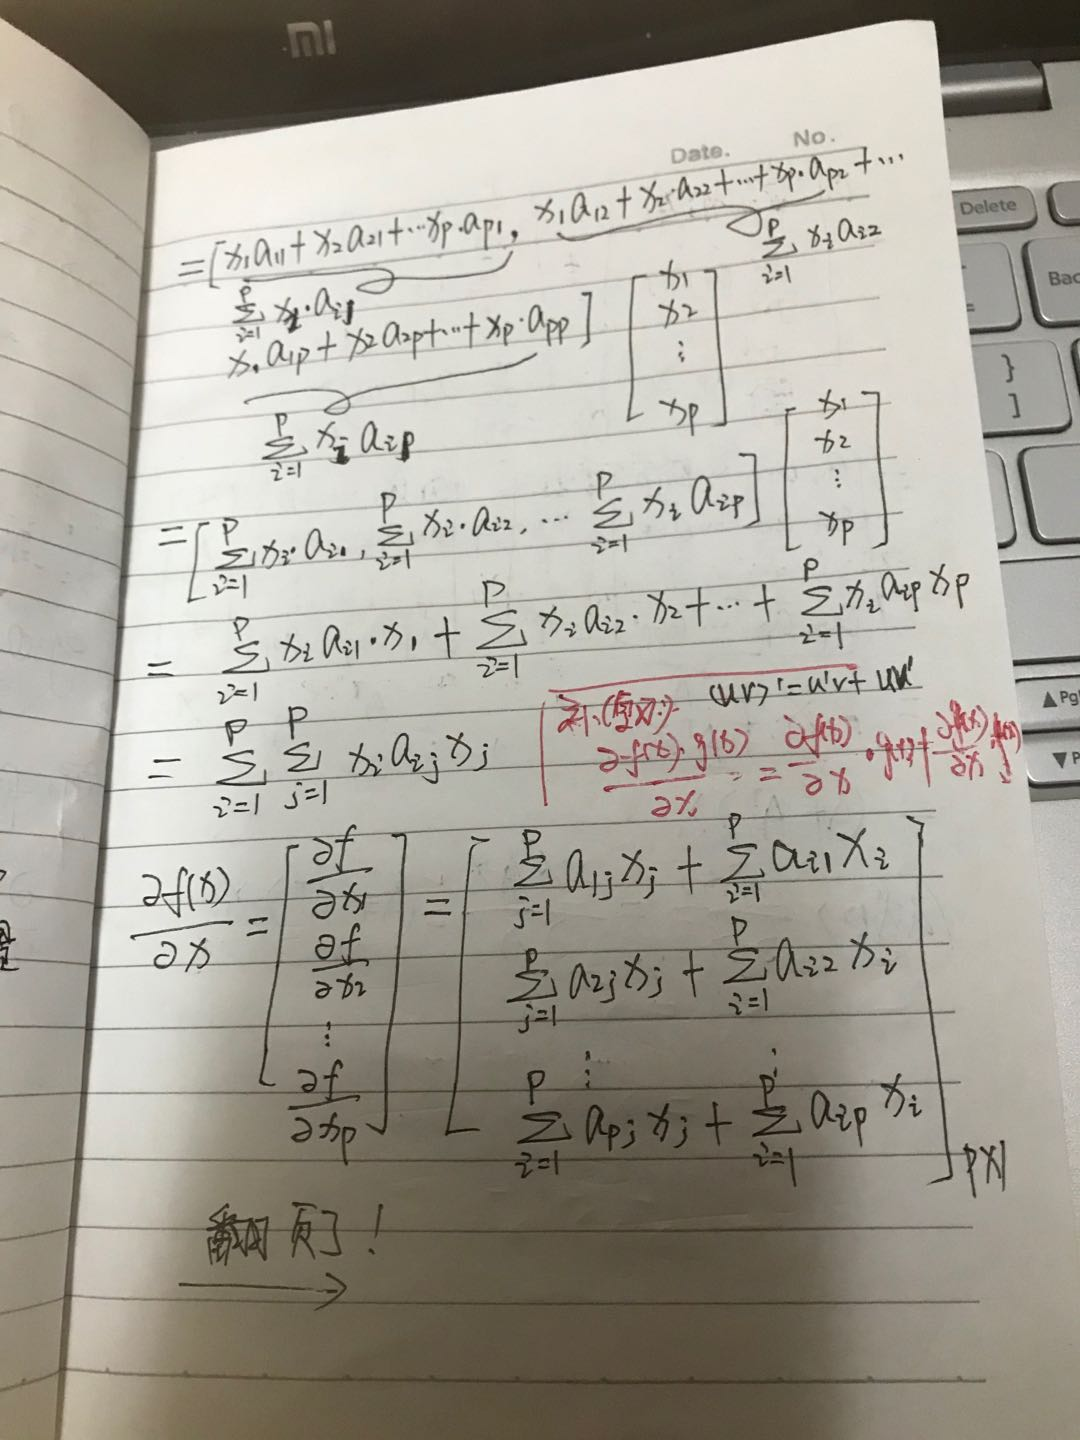 mi
Date. No.
= [x₁a₁₁ + x₂a₂₁ + ⋯ xp·ap₁, x₁a₁₂ + x₂·a₂₂ + ⋯ + xp·ap₂ + ⋯
∑_{i=1}^{P} xᵢ·aᵢ₁ ∑_{i=1}^{P} xᵢaᵢ₂
x₁a₁p + x₂a₂p + ⋯ + xp·app] [x₁ x₂ ⋮ xp]
∑_{i=1}^{P} xᵢ aᵢp
= [∑_{i=1}^{P} xᵢ·aᵢ₁, ∑_{i=1}^{P} xᵢ·aᵢ₂, ⋯ ∑_{i=1}^{P} xᵢ aᵢp] [x₁ x₂ ⋮ xp]
= ∑_{i=1}^{P} xᵢaᵢ₁·x₁ + ∑_{i=1}^{P} xᵢaᵢ₂·x₂ + ⋯ + ∑_{i=1}^{P} xᵢaᵢp xp
(uv)' = u'v + uv'
= ∑_{i=1}^{P} ∑_{j=1}^{P} xᵢaᵢⱼxⱼ
∂f(x)·g(x)/∂x = ∂f(x)/∂x · g(x) +
∂f(x)/∂x = [∂f/∂x₁ ∂f/∂x₂ ⋮ ∂f/∂xp] = [∑_{j=1}^{P} a₁ⱼxⱼ + ∑_{i=1}^{P} aᵢ₁xᵢ
∑_{j=1}^{P} a₂ⱼxⱼ + ∑_{i=1}^{P} aᵢ₂xᵢ
⋮ ⋮
∑_{i=1}^{P} apⱼxⱼ + ∑_{i=1}^{P} aᵢp xᵢ] p×1
翻页了!
Delete
Bac
}
]
▲Pg
▼P